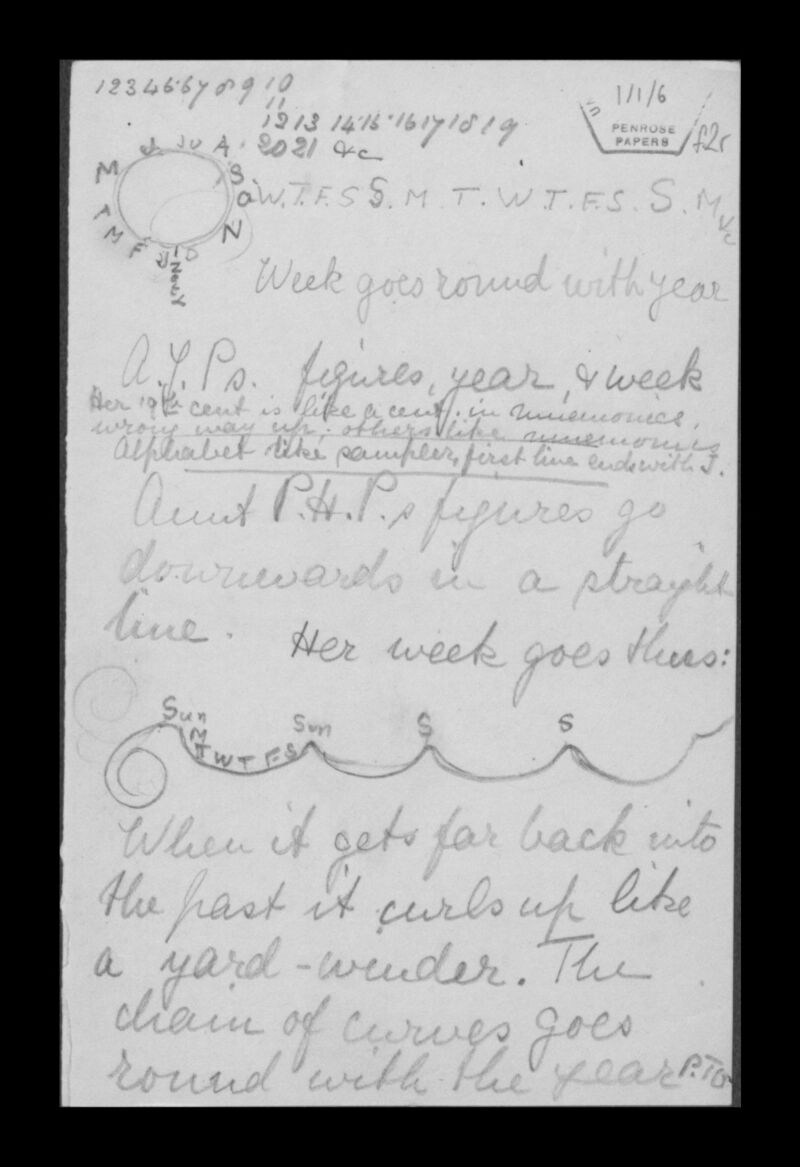 1 2 3 4 5 6 7 8 9 10
11
12 13 14 15 16 17 18 19
20 21 &c
1/1/6
PENROSE
PAPERS
f2r
M J Ju A S O N D J F M A
W. T. F. S S. M. T. W. T. F. S. S. M &c
Week goes round with year
A.Y.Ps. figures, year, & week
Her 19th cent is like a cent. in mnemonics,
wrong way up; others like mnemonics
Alphabet like sampler, first line ends with J.
Aunt P.H.P.s figures go
downwards in a straight
line. Her week goes thus:
Sun M T W T F S Sun S S
When it gets far back into
the past it curls up like
a yard-winder. The
chain of curves goes
round with the year P.T.O.